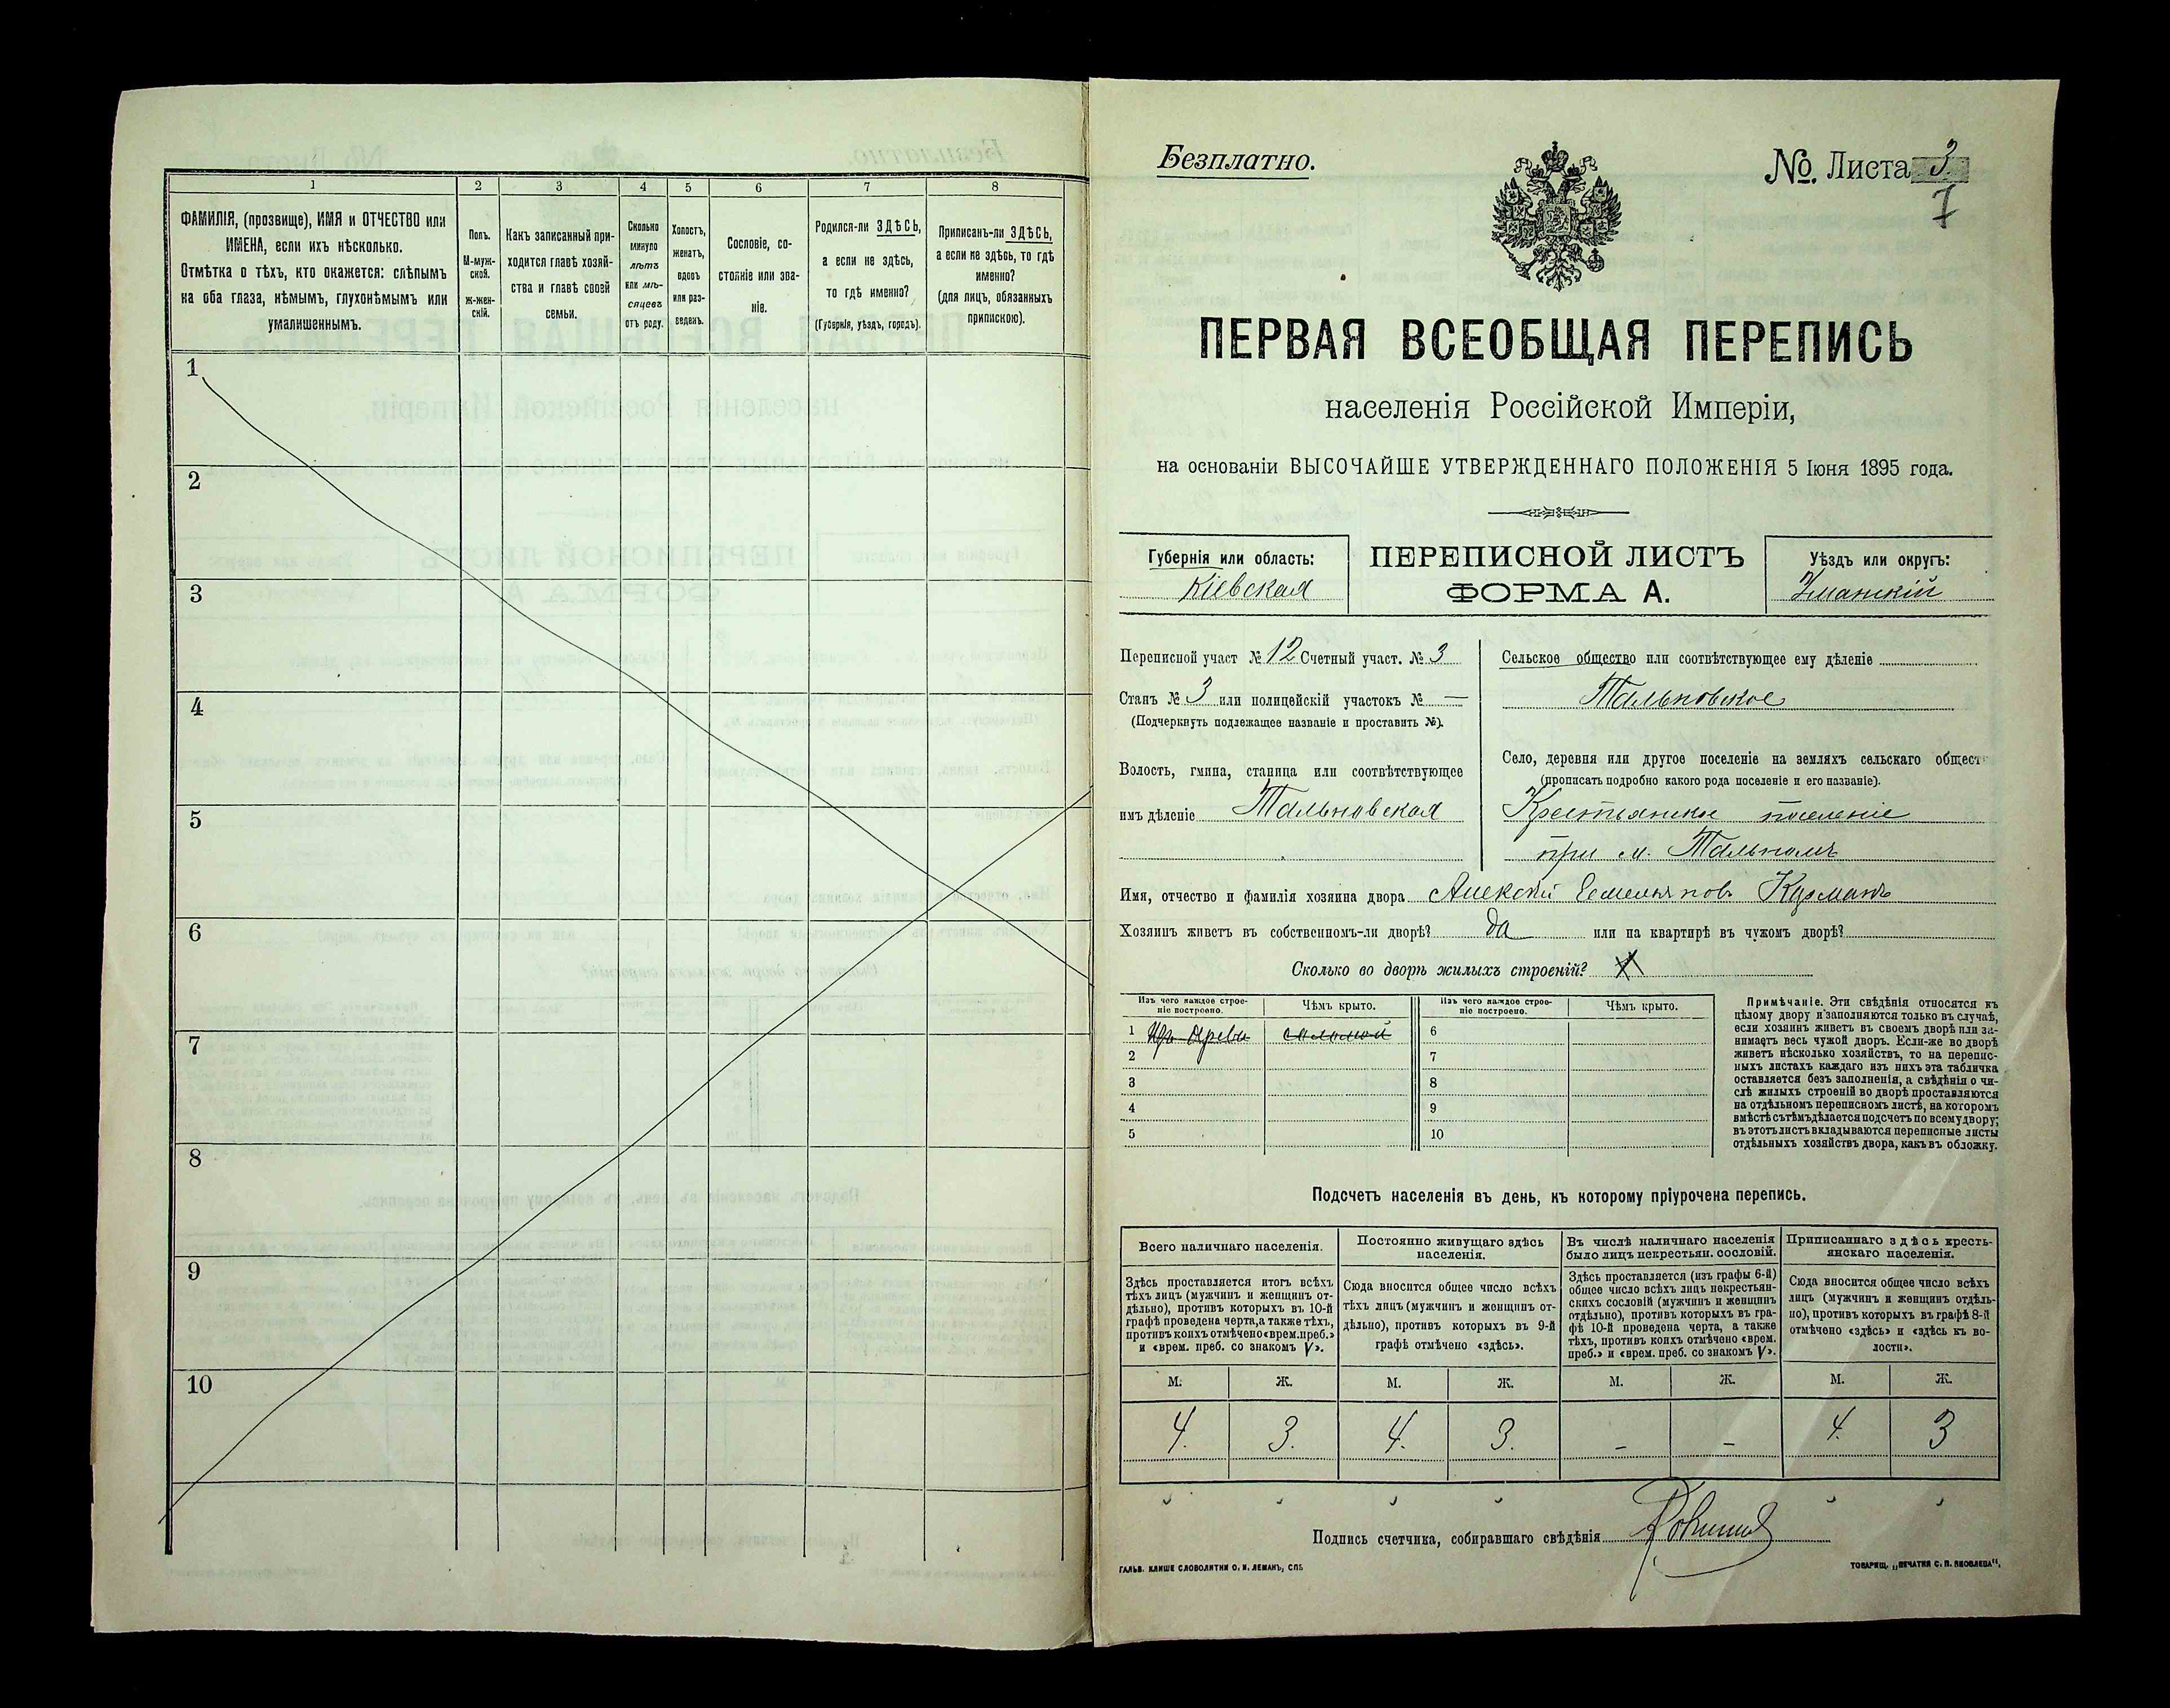 1
2
3
4
5
6
7
8
ФАМИЛІЯ, (прозвище), ИМЯ и ОТЧЕСТВО или
ИМЕНА, если ихъ нѣсколько.
Отмѣтка о тѣхъ, кто окажется: слѣпымъ
на оба глаза, нѣмымъ, глухонѣмымъ или
умалишеннымъ.
Полъ.
М-муж-
ской.
Ж-жен-
скій.
Какъ записанный при-
ходится главѣ хозяй-
ства и главѣ своей
семьи.
Сколько
минуло
лѣтъ
или мѣ-
сяцевъ
отъ роду.
Холостъ,
женатъ,
вдовъ
или раз-
веденъ.
Сословіе, со-
стояніе или зва-
ніе.
Родился-ли ЗДѢСЬ,
а если не здѣсь,
то гдѣ именно?
(Губернія, уѣздъ, городъ).
Приписанъ-ли ЗДѢСЬ,
а если не здѣсь, то гдѣ
именно?
(для лицъ, обязанныхъ
припискою).
1
2
3
4
5
6
7
8
9
10
Безплатно.
№. Листа 3.
7
ПЕРВАЯ ВСЕОБЩАЯ ПЕРЕПИСЬ
населенія Россійской Имперіи,
на основаніи ВЫСОЧАЙШЕ УТВЕРЖДЕННАГО ПОЛОЖЕНІЯ 5 Іюня 1895 года.
Губернія или область:
Кіевская
ПЕРЕПИСНОЙ ЛИСТЪ
ФОРМА А.
Уѣздъ или округъ:
Уманскій
Переписной участ № 12 Счетный участ. № 3
Станъ № 3 или полицейскій участокъ № —
(Подчеркнуть подлежащее названіе и проставить №).
Волость, гмина, станица или соотвѣтствующее
имъ дѣленіе Тальновская
Сельское общество или соотвѣтствующее ему дѣленіе
Тальновское
Село, деревня или другое поселеніе на земляхъ сельскаго общест
(прописать подробно какого рода поселеніе и его названіе).
Крестьянское поселеніе
при м. Тальномъ
Имя, отчество и фамилія хозяина двора Алексѣй Емельянов
Хозяинъ живетъ въ собственномъ-ли дворѣ? да или на квартирѣ въ чужомъ дворѣ?
Сколько во дворѣ жилыхъ строеній?
Изъ чего каждое строе-
ніе построено.
Чѣмъ крыто.
Изъ чего каждое строе-
ніе построено.
Чѣмъ крыто.
1 Изъ дерева соломой
2
3
4
5
6
7
8
9
10
Примѣчаніе. Эти свѣдѣнія относятся къ
цѣлому двору и заполняются только въ случаѣ,
если хозяинъ живетъ въ своемъ дворѣ или за-
нимаетъ весь чужой дворъ. Если-же во дворѣ
живетъ нѣсколько хозяйствъ, то на перепис-
ныхъ листахъ каждаго изъ нихъ эта табличка
оставляется безъ заполненія, а свѣдѣнія о чи-
слѣ жилыхъ строеній во дворѣ проставляются
на отдѣльномъ переписномъ листѣ, на которомъ
вмѣстѣ съ тѣмъ дѣлается подсчетъ по всему двору;
въ этотъ листъ вкладываются переписные листы
отдѣльныхъ хозяйствъ двора, какъ въ обложку.
Подсчетъ населенія въ день, къ которому пріурочена перепись.
Всего наличнаго населенія.
Здѣсь проставляется итогъ всѣхъ
тѣхъ лицъ (мужчинъ и женщинъ от-
дѣльно), противъ которыхъ въ 10-й
графѣ проведена черта, а также тѣхъ,
противъ коихъ отмѣчено «врем. преб.»
и «врем. преб. со знакомъ V».
Постоянно живущаго здѣсь
населенія.
Сюда вносится общее число всѣхъ
тѣхъ лицъ (мужчинъ и женщинъ от-
дѣльно), противъ которыхъ въ 9-й
графѣ отмѣчено «здѣсь».
Въ числѣ наличнаго населенія
было лицъ некрестьян. сословій.
Здѣсь проставляется (изъ графы 6-й)
общее число всѣхъ лицъ некрестьян-
скихъ сословій (мужчинъ и женщинъ
отдѣльно), противъ которыхъ въ гра-
фѣ 10-й проведена черта, а также
тѣхъ, противъ коихъ отмѣчено «врем.
преб.» и «врем. преб. со знакомъ V».
Приписаннаго здѣсь кресть-
янскаго населенія.
Сюда вносится общее число всѣхъ
лицъ (мужчинъ и женщинъ отдѣль-
но), противъ которыхъ въ графѣ 8-й
отмѣчено «здѣсь» и «здѣсь къ во-
лости».
М. Ж. М. Ж. М. Ж. М. Ж.
4. 3. 4. 3. - - 4. 3
Подпись счетчика, собиравшаго свѣдѣнія
ГАЛЬВ. КЛИШЕ СЛОВОЛИТНИ О. И. ЛЕМАНЪ, СПБ
ТОВАРИЩ. „ПЕЧАТНЯ С. П. ЯКОВЛЕВА".